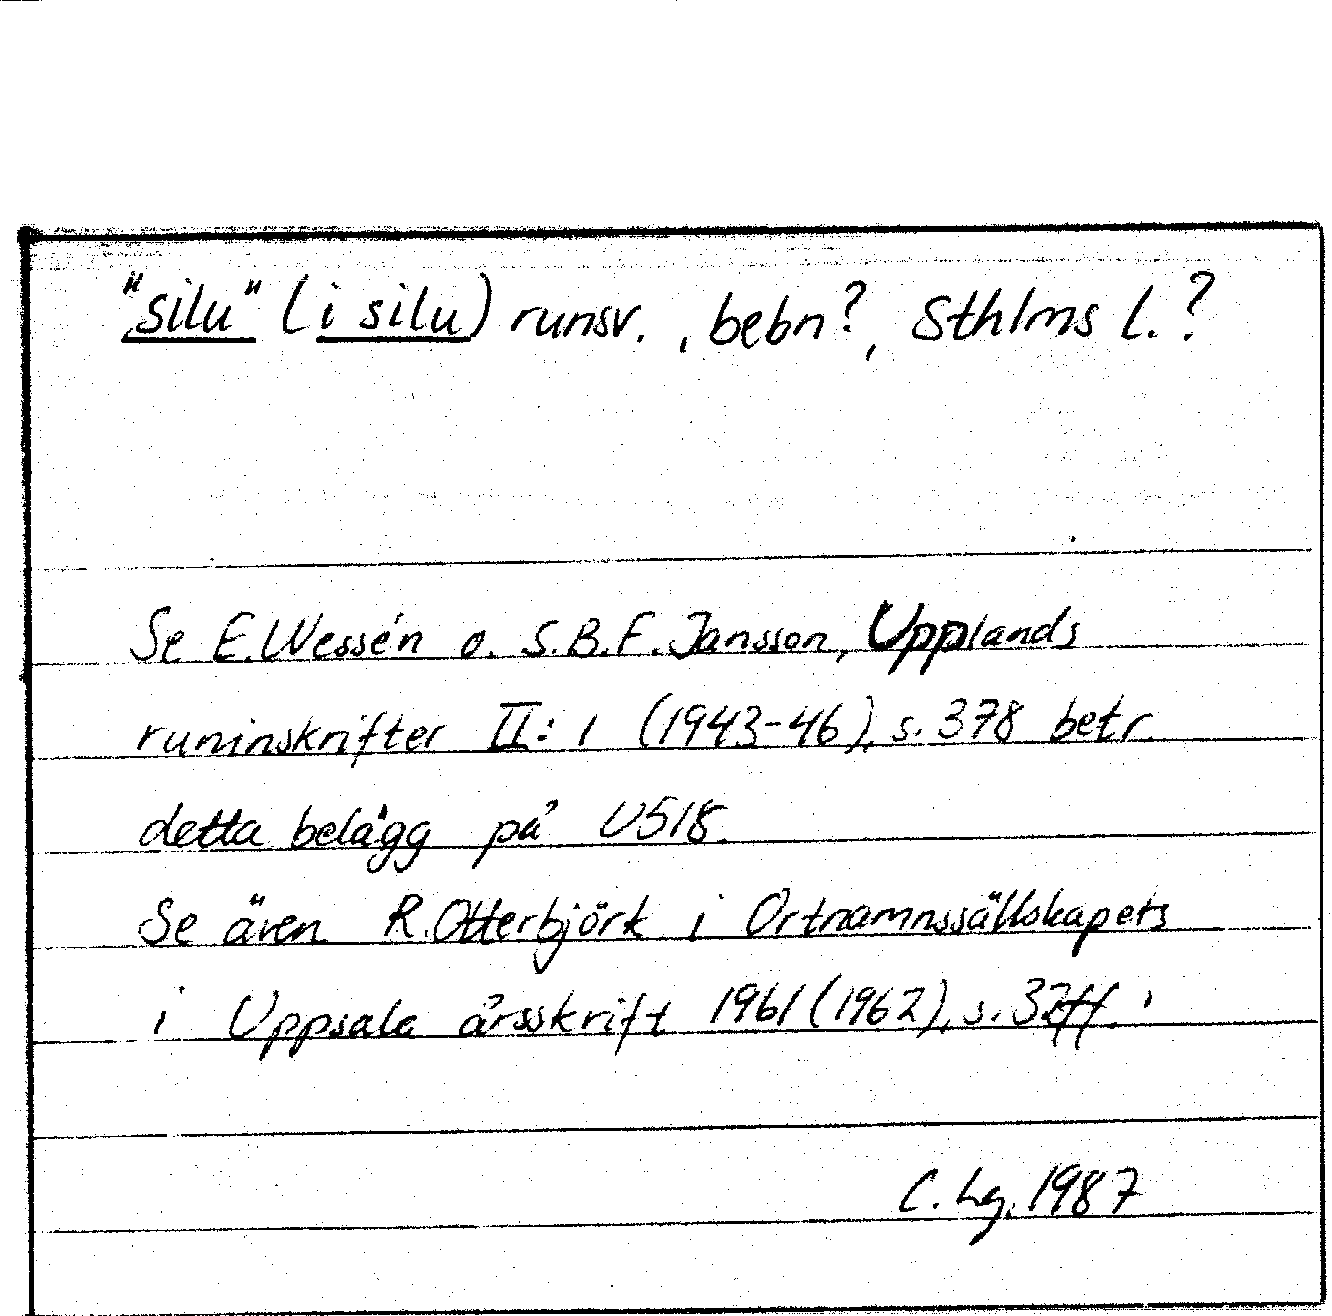 "silu" (i silu) runsv., bebn?, Sthlms l.?
Se E. Wessén o. S.B.F. Jansson, Upplands
runinskrifter II: 1 (1943-46), s. 378 betr.
detta belägg på U518.
Se även R. Otterbjörk i Ortnamnssällskapets
i Uppsala årsskrift 1961 (1962), s. 32ff.
C. Lg. 1987